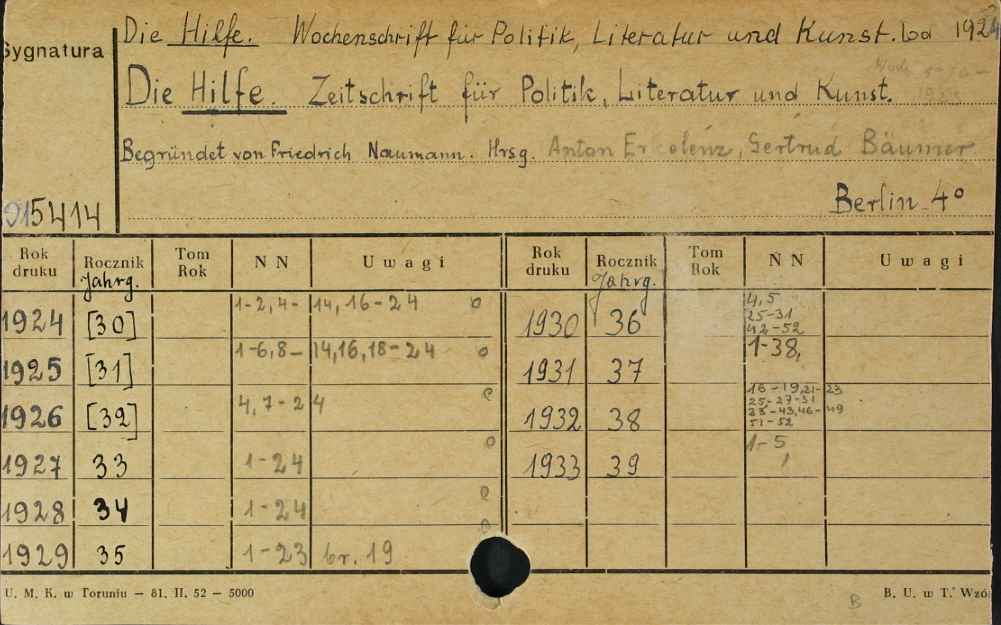 Die Hilfe. Wochenschrift für Politik, Literatur und Kunst. bd 1924
Sygnatura
Die Hilfe. Zeitschrift für Politik, Literatur und Kunst.
Begründet von Friedrich Naumann. Hrsg. Anton Erkelenz, Gertrud Bäumer
Berlin 4°
015414
Rok druku Rocznik Jahrg. Tom Rok N N Uwagi Rok druku Rocznik Jahrg. Tom Rok N N Uwagi
1924 [30] 1-2, 4- 14, 16-24 o 1930 36 4,5 25-31 42-52
1925 [31] 1-6, 8- 14, 16, 18-24 o 1931 37 1-38,
1926 [32] 4, 7-24 1932 38 16-19, 21-23 25-27-31 33-43, 46-49 51-52
1927 33 1-24 o 1933 39 1-5
1928 34 1-24
1929 35 1-23 br. 19
U. M. K. w Toruniu – 81. II. 52 – 5000 B B. U. w T. Wzó